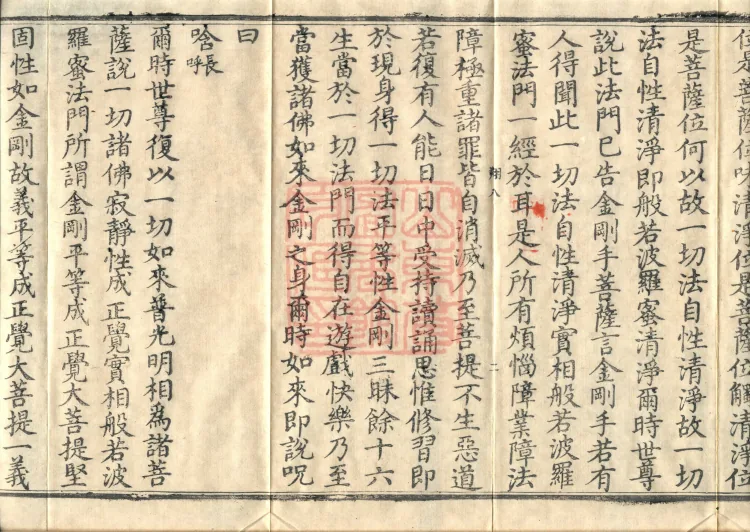 位是菩薩位味清淨位是菩薩位觸清淨位
是菩薩位何以故一切法自性清淨故一切
法自性清淨即般若波羅蜜清淨爾時世尊
說此法門已告金剛手菩薩言金剛手若有
人得聞此一切法自性清淨實相般若波羅
蜜法門一經於耳是人所有煩惱障業障法
障極重諸罪皆自消滅乃至菩提不生惡道
翔八 二
若復有人能日日中受持讀誦思惟修習即
於現身得一切法平等性金剛三昧餘十六
生當於一切法門而得自在遊戲快樂乃至
當獲諸佛如來金剛之身爾時如來即說呪
曰
唅長呼
爾時世尊復以一切如來普光明相為諸菩
薩說一切諸佛寂靜性成正覺實相般若波
羅蜜法門所謂金剛平等成正覺大菩提堅
固性如金剛故義平等成正覺大菩提一義